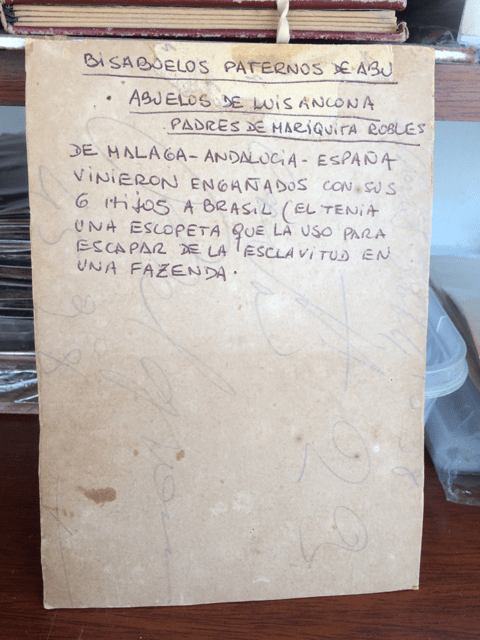 BISABUELOS PATERNOS DE ABU
. ABUELOS DE LUIS ANCONA
PADRES DE MARIQUITA ROBLES
DE MALAGA - ANDALUCIA - ESPAÑA
VINIERON ENGAÑADOS CON SUS
6 HIJOS A BRASIL (EL TENIA
UNA ESCOPETA QUE LA USO PARA
ESCAPAR DE LA ESCLAVITUD EN
UNA FAZENDA.